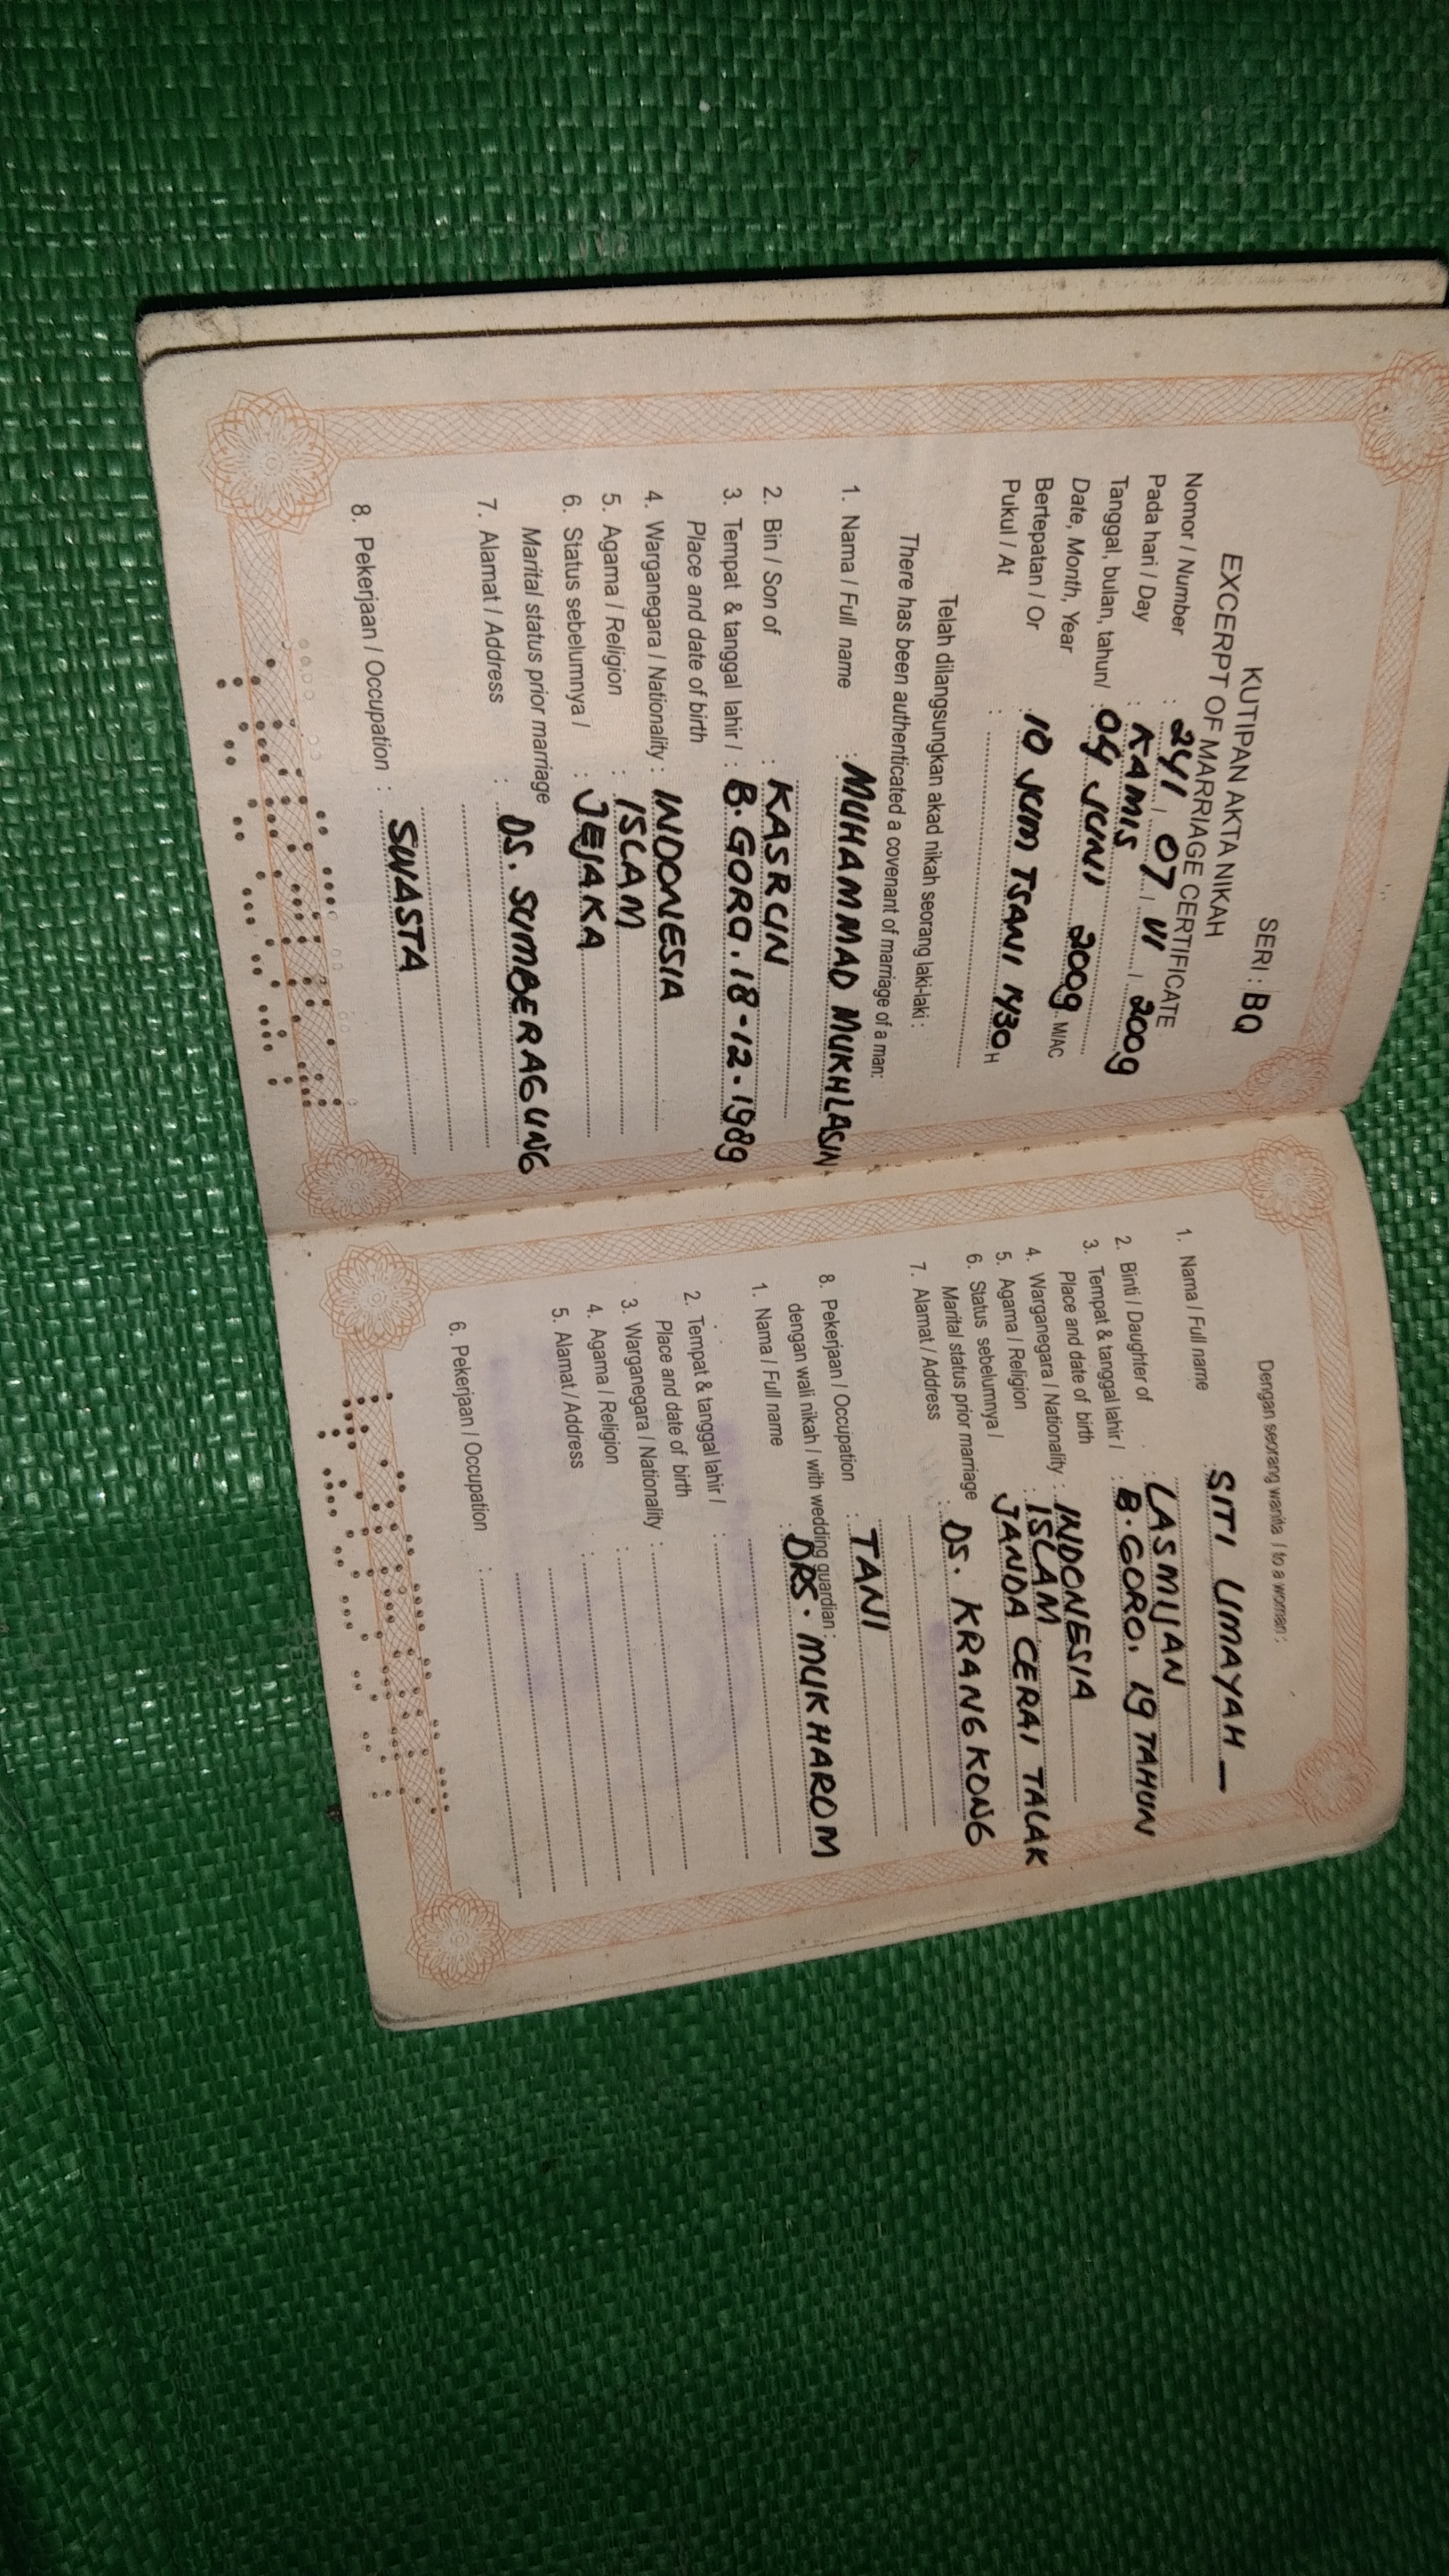 SERI : BQ
KUTIPAN AKTA NIKAH
EXCERPT OF MARRIAGE CERTIFICATE
Nomor / Number : 241 / 07 / VI / 2009
Pada hari / Day : KAMIS
Tanggal, bulan, tahun/ : 04 JUNI 2009 M/AC
Date, Month, Year
Bertepatan / Or : 10 JUM TSANI 1430 H
Pukul / At :
Telah dilangsungkan akad nikah seorang laki-laki :
There has been authenticated a covenant of marriage of a man:
1. Nama / Full name : MUHAMMAD MUKHLASIN
2. Bin / Son of : KASRUN
3. Tempat & tanggal lahir / : B.GORO. 18-12-1989
Place and date of birth
4. Warganegara / Nationality : INDONESIA
5. Agama / Religion : ISLAM
6. Status sebelumnya / : JEJAKA
Marital status prior marriage
7. Alamat / Address : DS. SUMBERAGUNG
8. Pekerjaan / Occupation : SWASTA
Dengan seorang wanita / to a woman :
1. Nama / Full name : SITI UMAYAH —
2. Binti / Daughter of : LASMIJAN
3. Tempat & tanggal lahir / : B.GORO, 19 TAHUN
Place and date of birth
4. Warganegara / Nationality : INDONESIA
5. Agama / Religion : ISLAM
6. Status sebelumnya / JANDA CERAI TALAK
Marital status prior marriage
7. Alamat / Address : DS. KRANGKONG
8. Pekerjaan / Occupation : TANI
dengan wali nikah / with wedding guardian :
1. Nama / Full name : DRS. MUKHAROM
2. Tempat & tanggal lahir / :
Place and date of birth
3. Warganegara / Nationality :
4. Agama / Religion :
5. Alamat / Address :
6. Pekerjaan / Occupation :